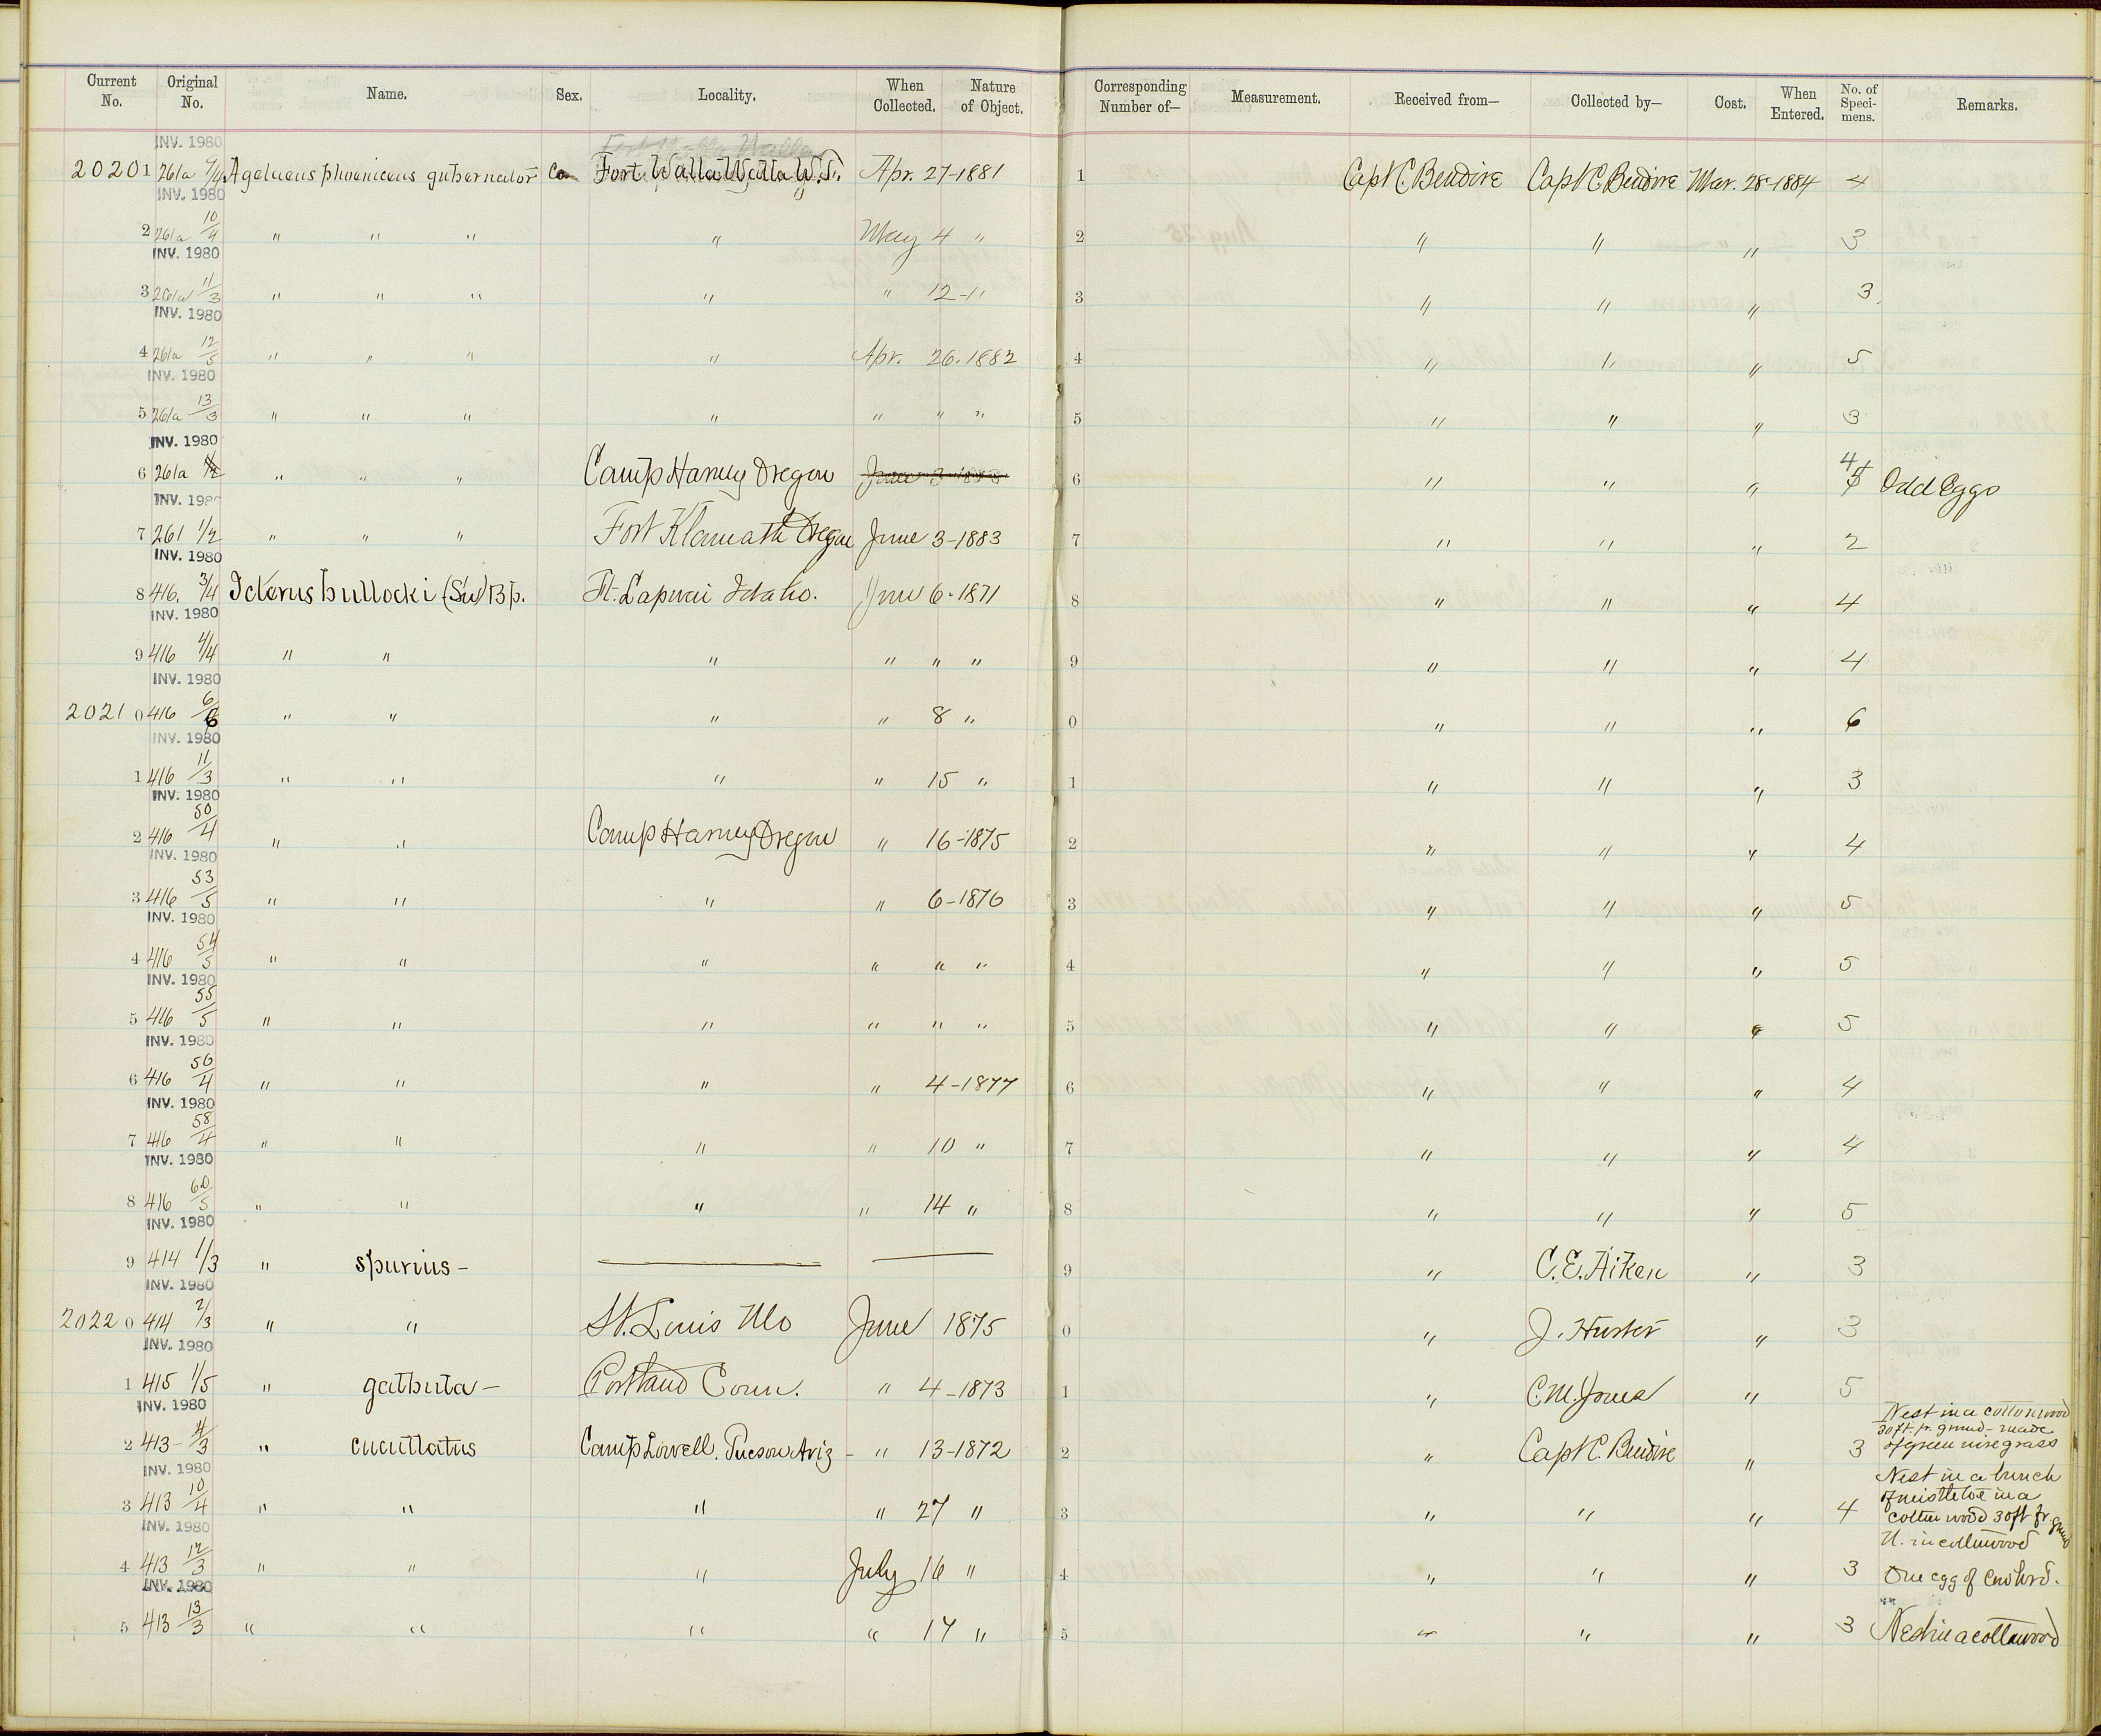 Current No. Original No. Name. Sex. Locality. When Collected. Nature of Object. Corresponding Number of— Measurement. Received from— Collected by— Cost. When Entered. No. of Speci-mens. Remarks.
INV. 1980
20201 261a 9/4 Agelaeus phoeniceus gubernator Fort Walla Walla W.T. Apr. 27-1881 1 Capt C. Bendire Capt C. Bendire Mar. 28-1884 4
INV. 1980
2 261a 10/4 " " " " May 4 " 2 " " " 3
INV. 1980
3 261a 11/3 " " " " " 12 - " 3 " " " 3.
INV. 1980
4 261a 12/5 " " " " Apr. 26. 1882 4 " " " 5
INV. 1980
5 261a 13/3 " " " " " " " 5 " " " 3
INV. 1980
6 261a " " " Camp Harney Oregon June 3-1883 6 " " " 4 Odd Eggs
INV. 1980
7 261 1/2 " " " Fort Klamath Oregon June 3-1883 7 " " " 2
INV. 1980
8 416. 3/4 Icterus bullocki (Sw) Bp. Ft. Lapwai Idaho. June 6-1871 8 " " " 4
INV. 1980
9 416 4/4 " " " " " " 9 " " " 4
INV. 1980
2021 0 416 6/6 " " " " 8 " 0 " " " 6
INV. 1980
1 416 11/3 " " " " 15 " 1 " " " 3
INV. 1980
2 416 50/4 " " Camp Harney Oregon " 16-1875 2 " " " 4
INV. 1980
3 416 53/5 " " " " 6-1876 3 " " " 5
INV. 1980
4 416 54/5 " " " " " " 4 " " " 5
INV. 1980
5 416 55/5 " " " " " " 5 " " " 5
INV. 1980
6 416 56/4 " " " " 4-1877 6 " " " 4
INV. 1980
7 416 58/4 " " " " 10 " 7 " " " 4
INV. 1980
8 416 60/5 " " " " 14 " 8 " " " 5
INV. 1980
9 414 1/3 " spurius - 9 " C. E. Aiken " 3
INV. 1980
2022 0 414 2/3 " " St. Louis Mo June 1875 0 " J. Hurter " 3
INV. 1980
1 415 1/5 " galbula - Portland Conn. " 4-1873 1 " C. M. Jones " 5
INV. 1980
2 413 - 4/3 " cucullatus Camp Lowell. Tucson Ariz - " 13-1872 2 " Capt C. Bendire " 3 Nest in a cottonwood
30 ft. fr. grund - made
of green wire grass
INV. 1980
3 413 10/4 " " " " 27 " 3 " " " 4 Nest in a bunch
of mistletoe in a
cotton wood 30 ft fr. grund
INV. 1980
4 413 12/3 " " " July 16 " 4 " " " 3 N. in cottonwood
One egg of Cowbrd.
INV. 1980
5 413 13/3 " " " " 17 " 5 " " " 3 Nest in a cottonwood